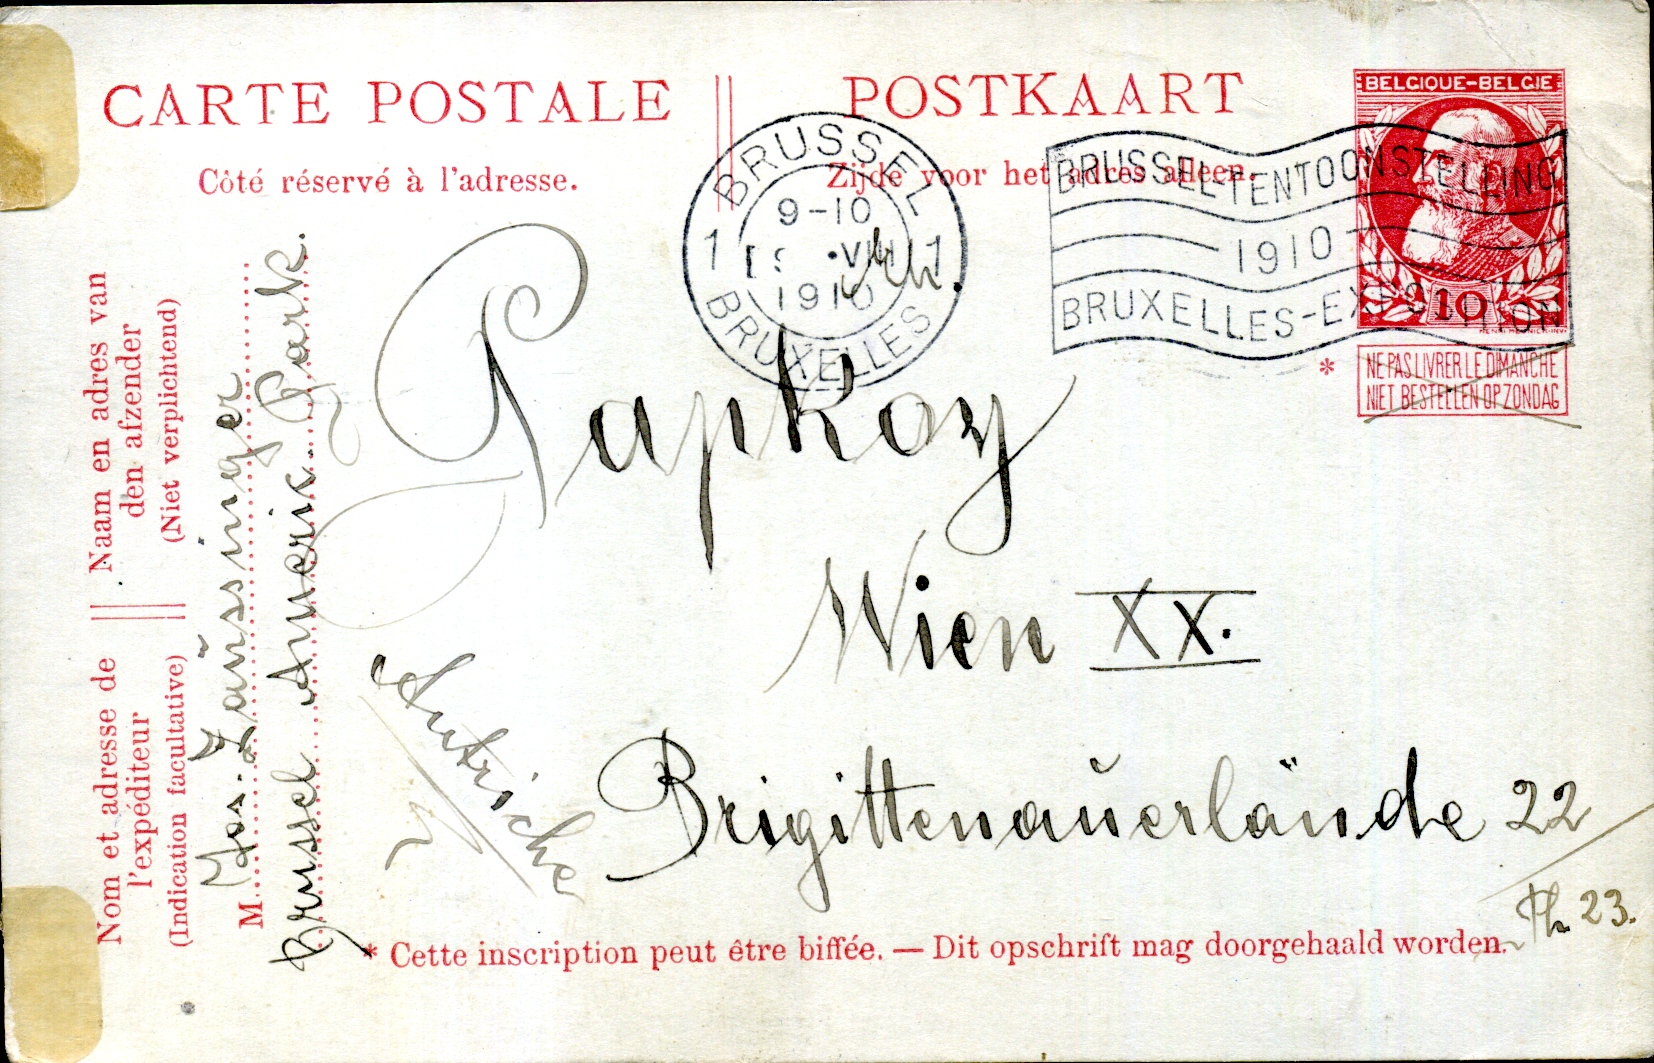 CARTE POSTALE
POSTKAART
Côté réservé à l'adresse.
Zijde voor het adres alleen.
BELGIQUE-BELGIE
10
NE PAS LIVRER LE DIMANCHE
NIET BESTELLEN OP ZONDAG
*
BRUSSEL
9-10
1 VIII 1
1910
BRUXELLES
BRUSSEL-TENTOONSTELLING
1910
BRUXELLES-EXPOSITION
Papkoy
Wien XX.
Brigittenauerlände 22
Th 23.
Autriche
Naam en adres van
den afzender
(Niet verplichtend)
Nom et adresse de
l'expéditeur
(Indication facultative)
M
Jos. Zaussinger
Brussel Americ Park.
* Cette inscription peut être biffée. — Dit opschrift mag doorgehaald worden.